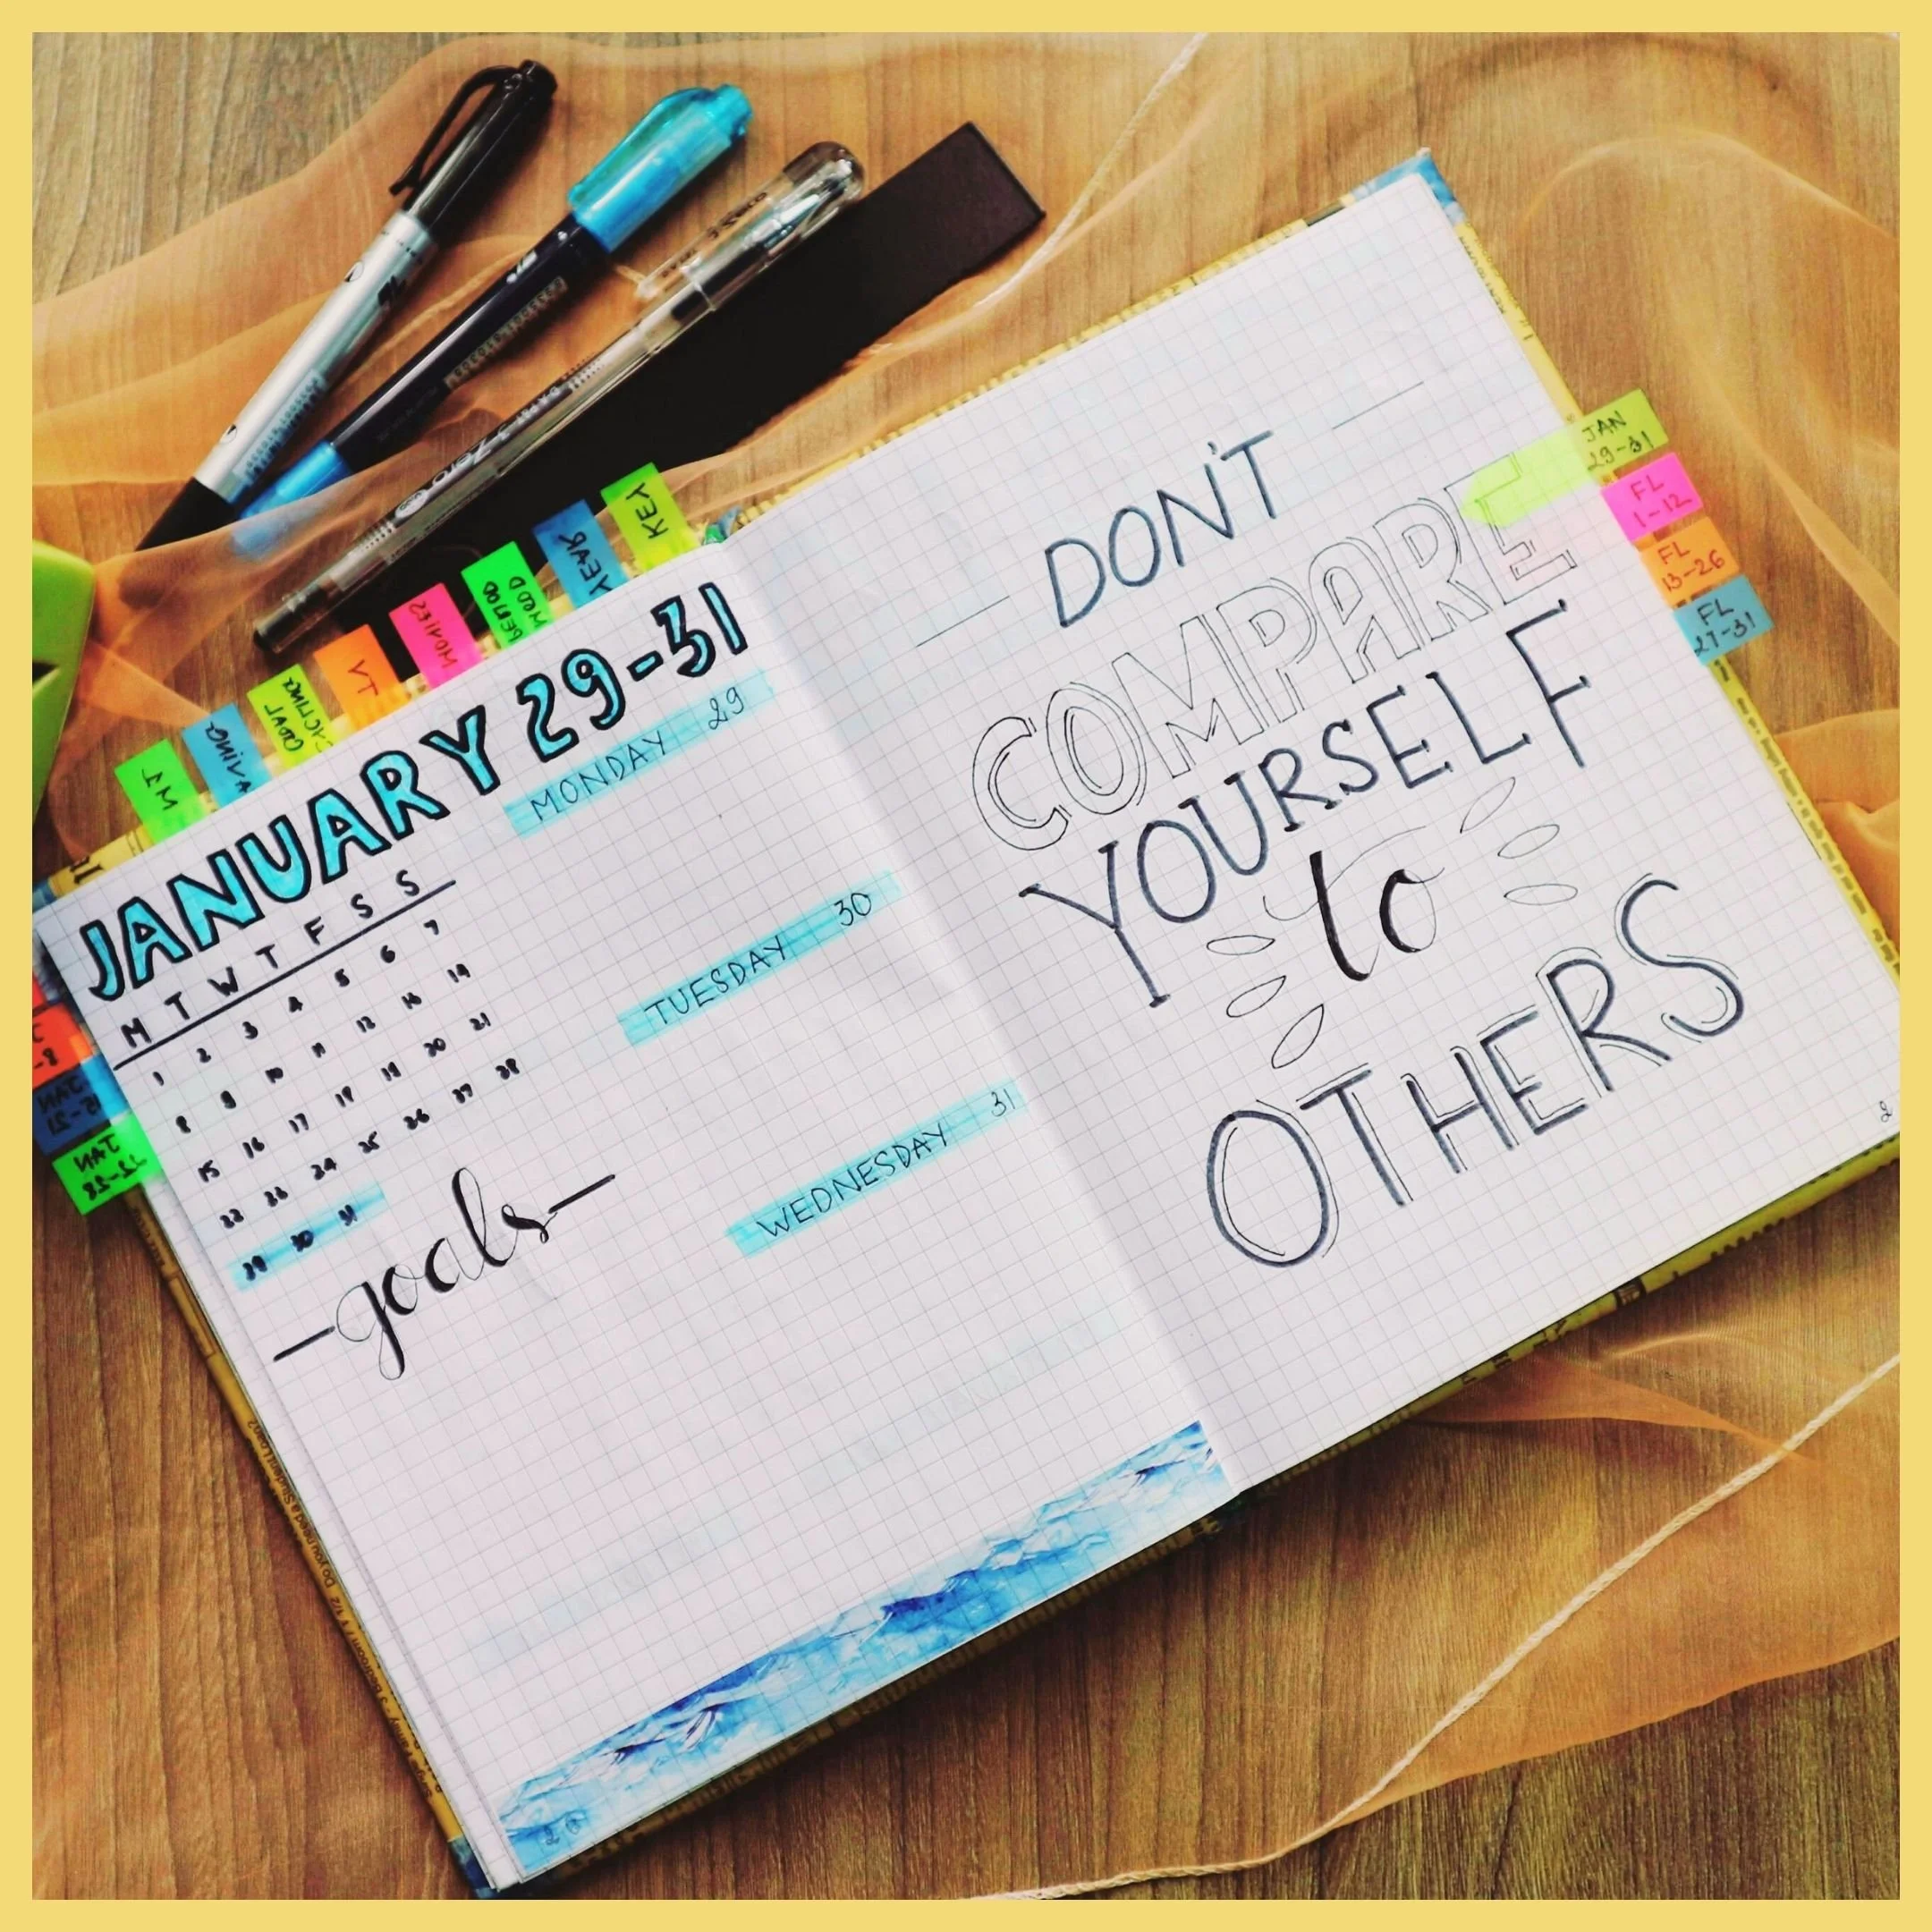 KEY
YEAR
MOOD
MOVIES
JANUARY 29-31
M T W T F S S
1 2 3 4 5 6 7
8 9 10 11 12 13 14
15 16 17 18 19 20 21
22 23 24 25 26 27 28
29 30 31
-goals-
MONDAY 29
TUESDAY 30
WEDNESDAY 31
DON'T
COMPARE
YOURSELF
to
OTHERS
JAN
29-31
FL
1-12
FL
13-26
FL
27-31
JAN
22-28
Zero